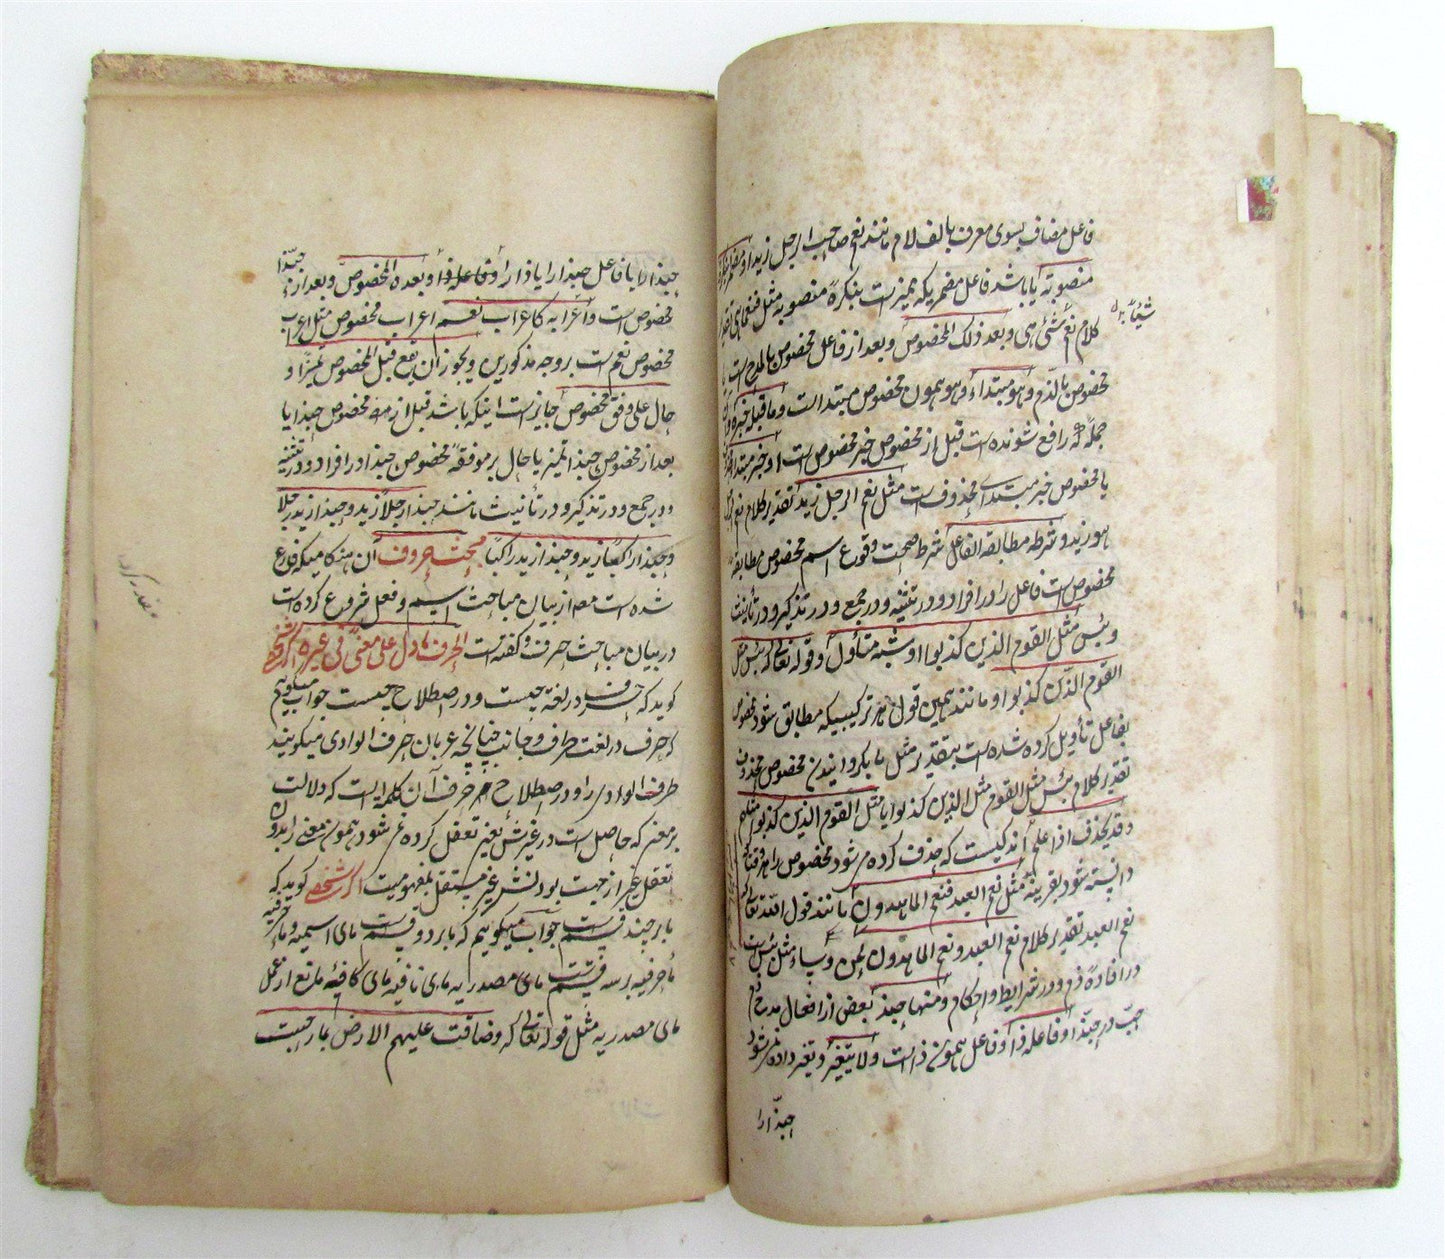 فاعل مضاف بسوی معرف بالف لام مانند نعم صاحب الرجل زید او مضمرا
منصوبة یا باشد فاعل مضمریکه ممیز است بنکرهٔ منصوبه مثل فنعما هی تقدیر
شیئا
کلام نعم شیئی هی وبعد ذلک المخصوص وبعد از فاعل مخصوص بالمدح است یا
مخصوص بالذم وهو مبتداء وهو همون مخصوص مبتدا است وماقبله خبره
جملهٔ که رافع شونده است قبل از مخصوص خبر مخصوص است او خبر مبتدا
یا مخصوص خبر مبتدای محذوف است مثل نعم الرجل زید تقدیر کلام نعم الرجل
هو زید وشرطه مطابقة الفاعل شرط صحت وقوع اسم مخصوص مطابقه
مخصوص است فاعل را در افراد ودر تثنیه ودر جمع ودر تذکیر ودر تأنیث
وبئس مثل القوم الذین کذبوا وشبهه متأول وقوله تعالی که بئس مثل
القوم الذین کذبوا ومانند همین قول هر ترکیبیکه مطابق نشود مخصوص
بفاعل تأویل کرده شده است بتقدیر مثل یا بگردانیدن مخصوص محذوف
تقدیر کلام بئس مثل القوم مثل الذین کذبوا یا مثل القوم الذین کذبوا مثلهم
وقد یحذف اذا علم اندکیست که حذف کرده می شود مخصوص را هر وقتیکه
دانسته شود بقرینه مثل نعم العبد فنعم الماهدون مانند قول الله تعالی که
نعم العبد تقدیر کلام نعم العبد ونعم الماهدون نحن وساء مثل بئس است
در افادهٔ ذم ودر شرایط واحکام ومنها حبذ بعضی از افعال مدح وذم
حب در حبذا وفاعله ذا وفاعل همون ذا است ولا یتغیر وتغیر داده نمی شود
حبذا را
حبذا را یا فاعل حبذا را یا ذا را وفاعله ذا وبعده المخصوص وبعد از حبذا
مخصوص است واعرابه کاعراب نعم اعراب مخصوص مثل اعراب
مخصوص نعم است بر وجه مذکورین ویجوز ان یقع قبل المخصوص تمییزا و
حال علی وفق مخصوص جایز است اینکه باشد قبل از مخصوص حبذا یا
بعد از مخصوص حبذا تمییز یا حال بر موفقه مخصوص حبذا در افراد ودر تثنیه
ودر جمع ودر تذکیر ودر تأنیث مانند حبذا رجلا زید وحبذا زید رجلا
وحبذا راکبا زید وحبذا زید راکبا مبحث حروف آن هنکامیکه فارغ
شده است مصـ از بیان مباحث اسم وفعل شروع کرده است
در بیان مباحث حرف وکفته است الحرف ما دل علی معنی فی غیره اکر شخصی
کوید که حرف در لغة چیست ودر اصطلاح چیست جواب میکوییم
که حرف در لغت طرف وجانب چنانچه عربان حرف الوادی میکویند
طرف الوادی را ودر اصطلاح حرف آن کلمه ایست که دلالت
بر معنی که حاصل است در غیرش یعنی تعقل کرده نمی شود همون معنی ار بدون
تعقل غیر از جهت بودنش غیر مستقل بمفهومیت اکر شخصی کوید که
ما بر چند قسم است جواب میکوییم که ما بر دو قسم است مای اسمیه وما حرفیه
ما حرفیه بر سه قسم است مای مصدریه مای نافیه مای کافیه مانع از عمل
مای مصدریه مثل قوله تعالی که وضاقت علیهم الارض بما رحبت